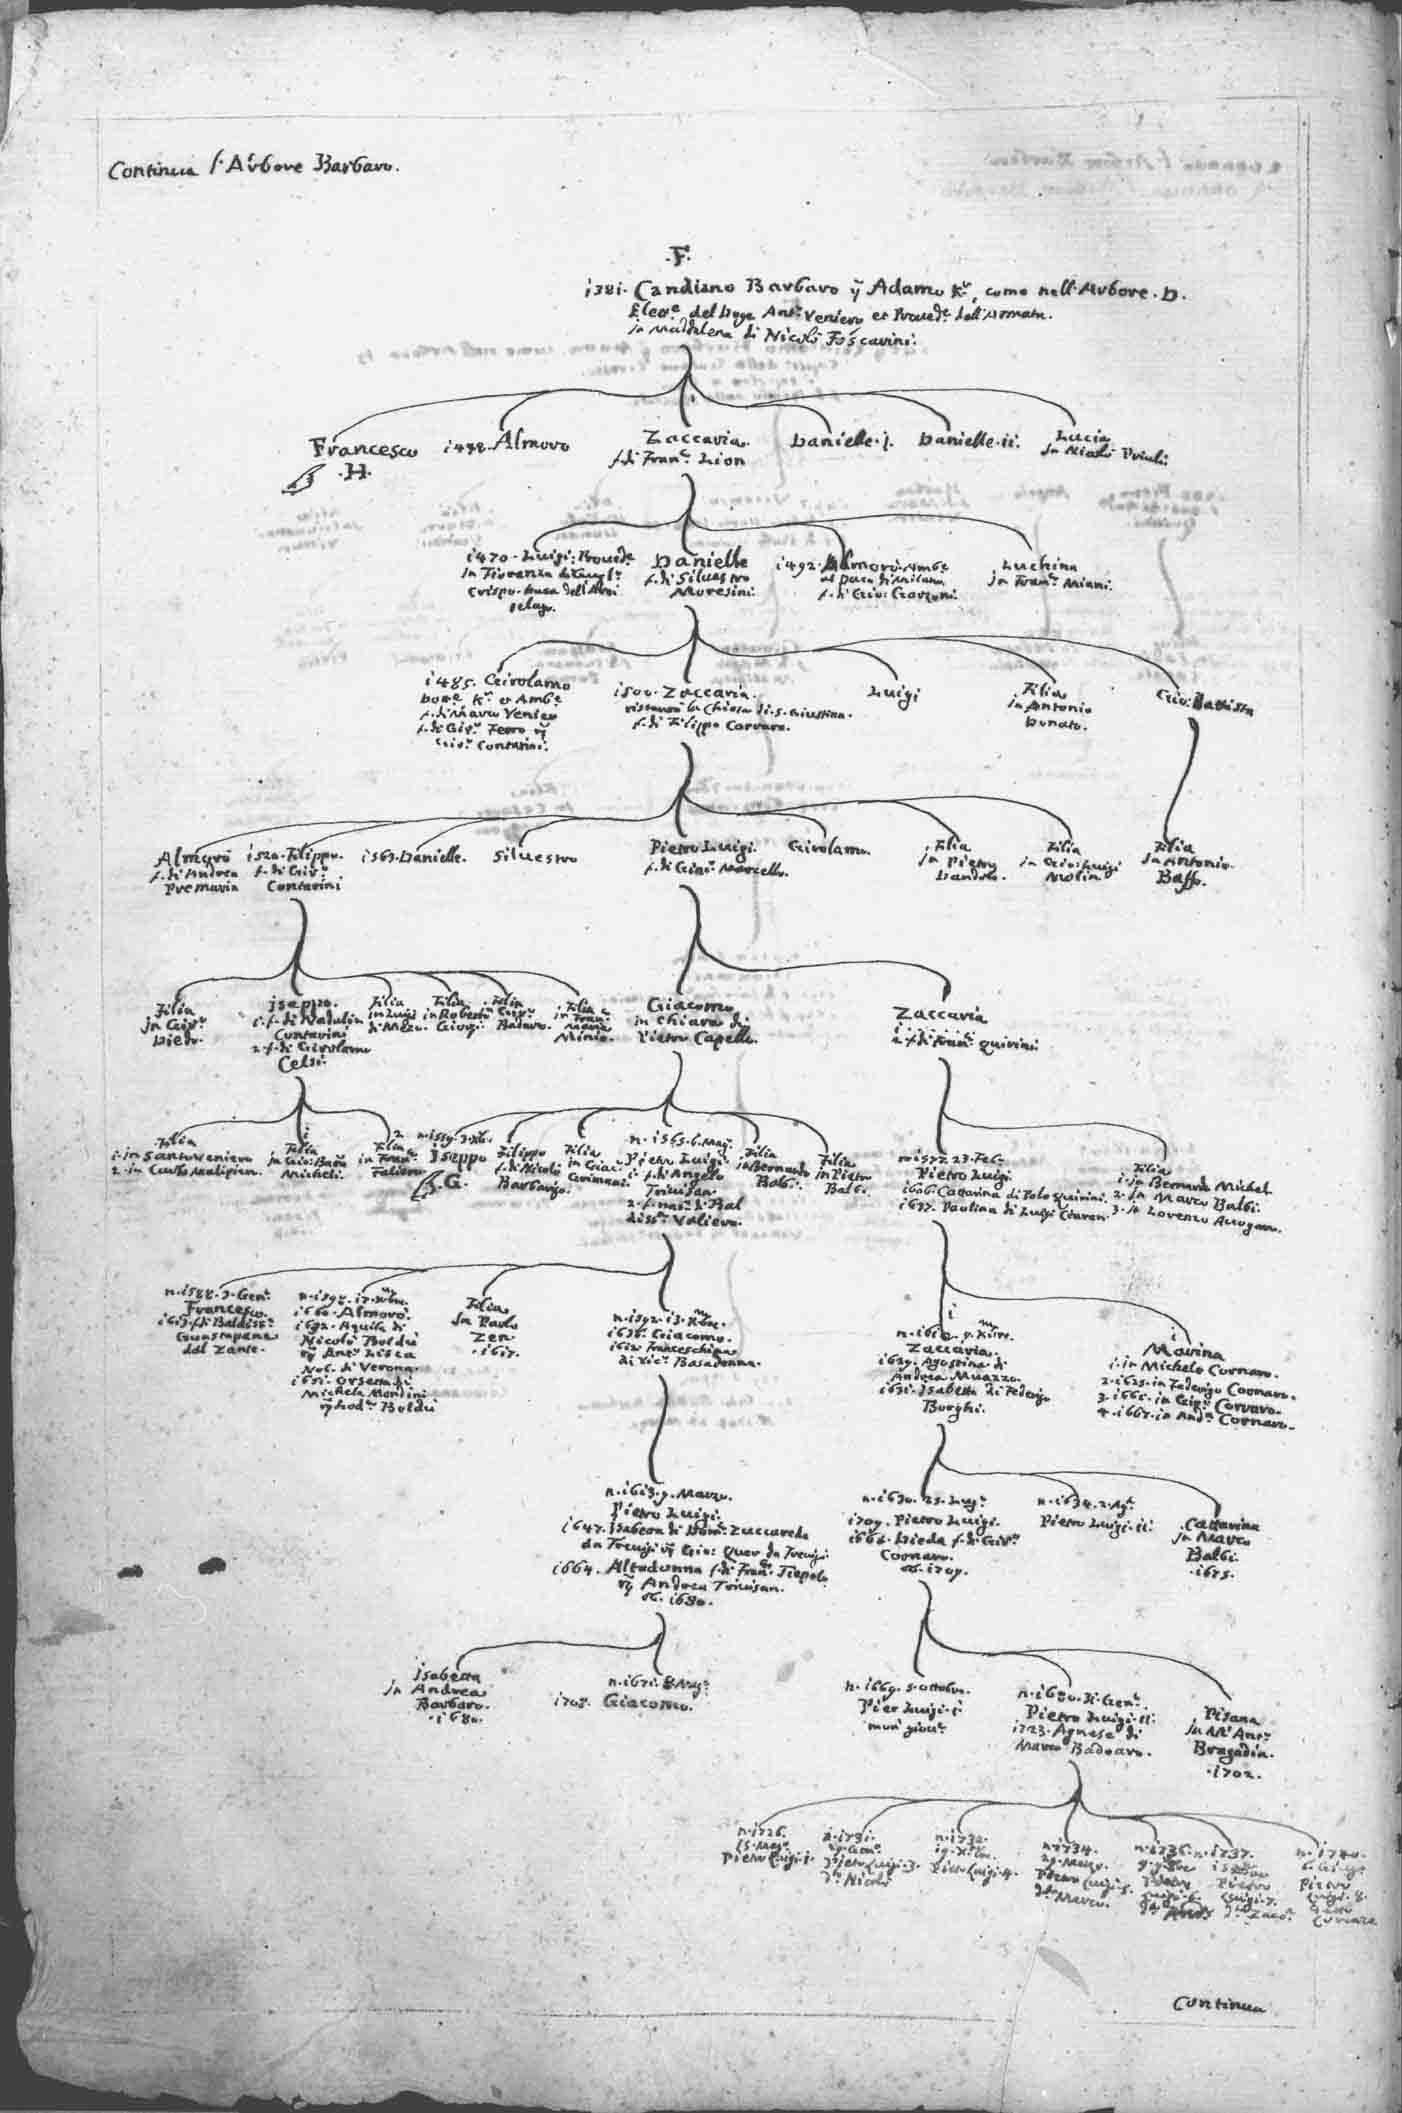 Continua l'Arbore Barbaro.
.F.
1381. Candiano Barbaro q̃ Adamo Kr, como nell'Arbore. D.
del Doge Antº Veniero et Proved.e dell'Armata.
in Maddalena di Nicolò Foscarini.
Francesco
.H.
1438. Almoro
Zaccaria
f. di Franc. Lion
Danielle. j.
Danielle. ii.
Lucia
in Nicolò Priuli.
1470. Luigi: Proved.e
Crispo. Duca dell'Arci
pelago.
Danielle
f. di Silvestro
Moresini.
1492. Almorò Amb.e
al Duca di Milano
f. di Giov: Garzoni.
Luchina
in Franc. Miani.
1485. Girolamo
Dott.e Kr et Amb.e
f. di Marco Venier
f. di Gir.o Ferro q̃
Gir.o Contarini.
1500. Zaccaria.
ristaurò la Chiesa di S. Giustina.
f. di Filippo Corraro.
Luigi
Filia
in Antonio
Donato.
Gio: Battista
Almorò
f. di Andrea
Premarin
1520. Filippo.
f. di Gir.o
Contarini
1563. Danielle.
Silvestro
Pietro Luigi.
f. di Marcello.
Girolamo.
Filia
in Pietro
Dandolo.
Filia
in Giov: Luigi
Molin.
Filia
in Antonio
Baffo.
Filia
in Gir.o
Diedo.
Iseppo.
1. f. di Nadalin
Contarini
2. f. di Girolamo
Celsi.
Filia
in Luigi
di Mezo.
Filia
in Roberto
Giorgi.
Filia
Badoaro.
Filia
in Fran.
Maria
Minio.
Giacomo
in Chiara di
Pietro Capello.
Zaccaria
1. . . . . . .
2. f. di Franc. Quirini.
Filia
1. in Santo Veniero
2. in Carlo Malipiero.
Filia
in Gio: Batta
Micheli.
Filia
in Franc.
Faliero.
n. 1559.
Iseppo
.G.
Filippo
f. di Nicolò
Barbarigo.
Filia
in Giac.
Grimani.
n. 1565. 6. Mag.
Pietro Luigi
1. f. di Angelo
Trivisan.
2. f. nat. di Bal
diss. Valiero.
Filia
in Bernardo
Balbi.
Filia
in Pietro
Balbi.
n. 1577. 23. Feb.
Pietro Luigi.
1606. Cattarina di Polo Quirini.
1637. Paulina di Luigi Contarini.
Filia
1. in Bernardo Michel.
2. in Marco Balbi.
3. in Lorenzo Arrogon.
n. 1588. 3. Gen.
Francesco.
1613. f. di Baldiss.
Guastapane
dal Zante.
1660. Almorò.
1632. Aquila di
Nicolò Boldù
Nob. di Verona.
1651. Orsetta di
Michele Mondini
q̃ Lod. Boldù
Filia
in Paolo
Zen
.1617.
n. 1592. 13.
1636. Giacomo.
1612. Franceschina
di Vic. Basadonna.
Zaccaria.
1629. Agostina di
Andrea Muazzo.
1631. Isabetta di Federigo
Borghi.
Marina
1. in Michele Cornaro.
2. 1625. in Federigo Cornaro.
3. 1661. in Gir.o Corraro.
4. 1667. in And. Cornaro.
n. 1613. 9. Marzo.
Pietro Luigi.
1647. Isabetta di Dom. Zuccareda
da Trevigi q̃ Gio: Quer da Trevigi.
1664. Altadonna f. di Fran. Tiepolo
q̃ Andrea Trivisan.
ob. 1680.
n. 1630. 25. Lug.
1709. Pietro Luigi.
1662. Dieda f. di Gir.o
Cornaro.
ob. 1709.
n. 1634. 2. Ag.
Pietro Luigi. ii.
Cattarina
in Marco
Balbi.
.1675.
Isabetta
in Andrea
Barbaro.
.1680.
n. 1671. 8. Mag.
1708. Giacomo.
n. 1669. 5. Ottobre.
Pier Luigi. i.
morì giov.e
n. 1680. Gen.
Pietro Luigi. ii.
1723. Agnese di
Marco Badoaro.
Pisana
in M. Ant.
Bragadin.
.1702.
n. 1726.
15. Mag.
Pietro Luigi. 1.
n. 1731.
Pietro Luigi. 3.
d. Nicolò
n. 1732.
Pietro Luigi. 4.
n. 1734.
29. Marzo.
Pietro Luigi. 5.
d. Marco.
n. 1736.
Pietro
Luigi. 6.
n. 1737.
Pietro
Luigi. 7.
d. Zacc.
n. 1740.
6. Giug.
Pietro
Luigi. 8.
Continua